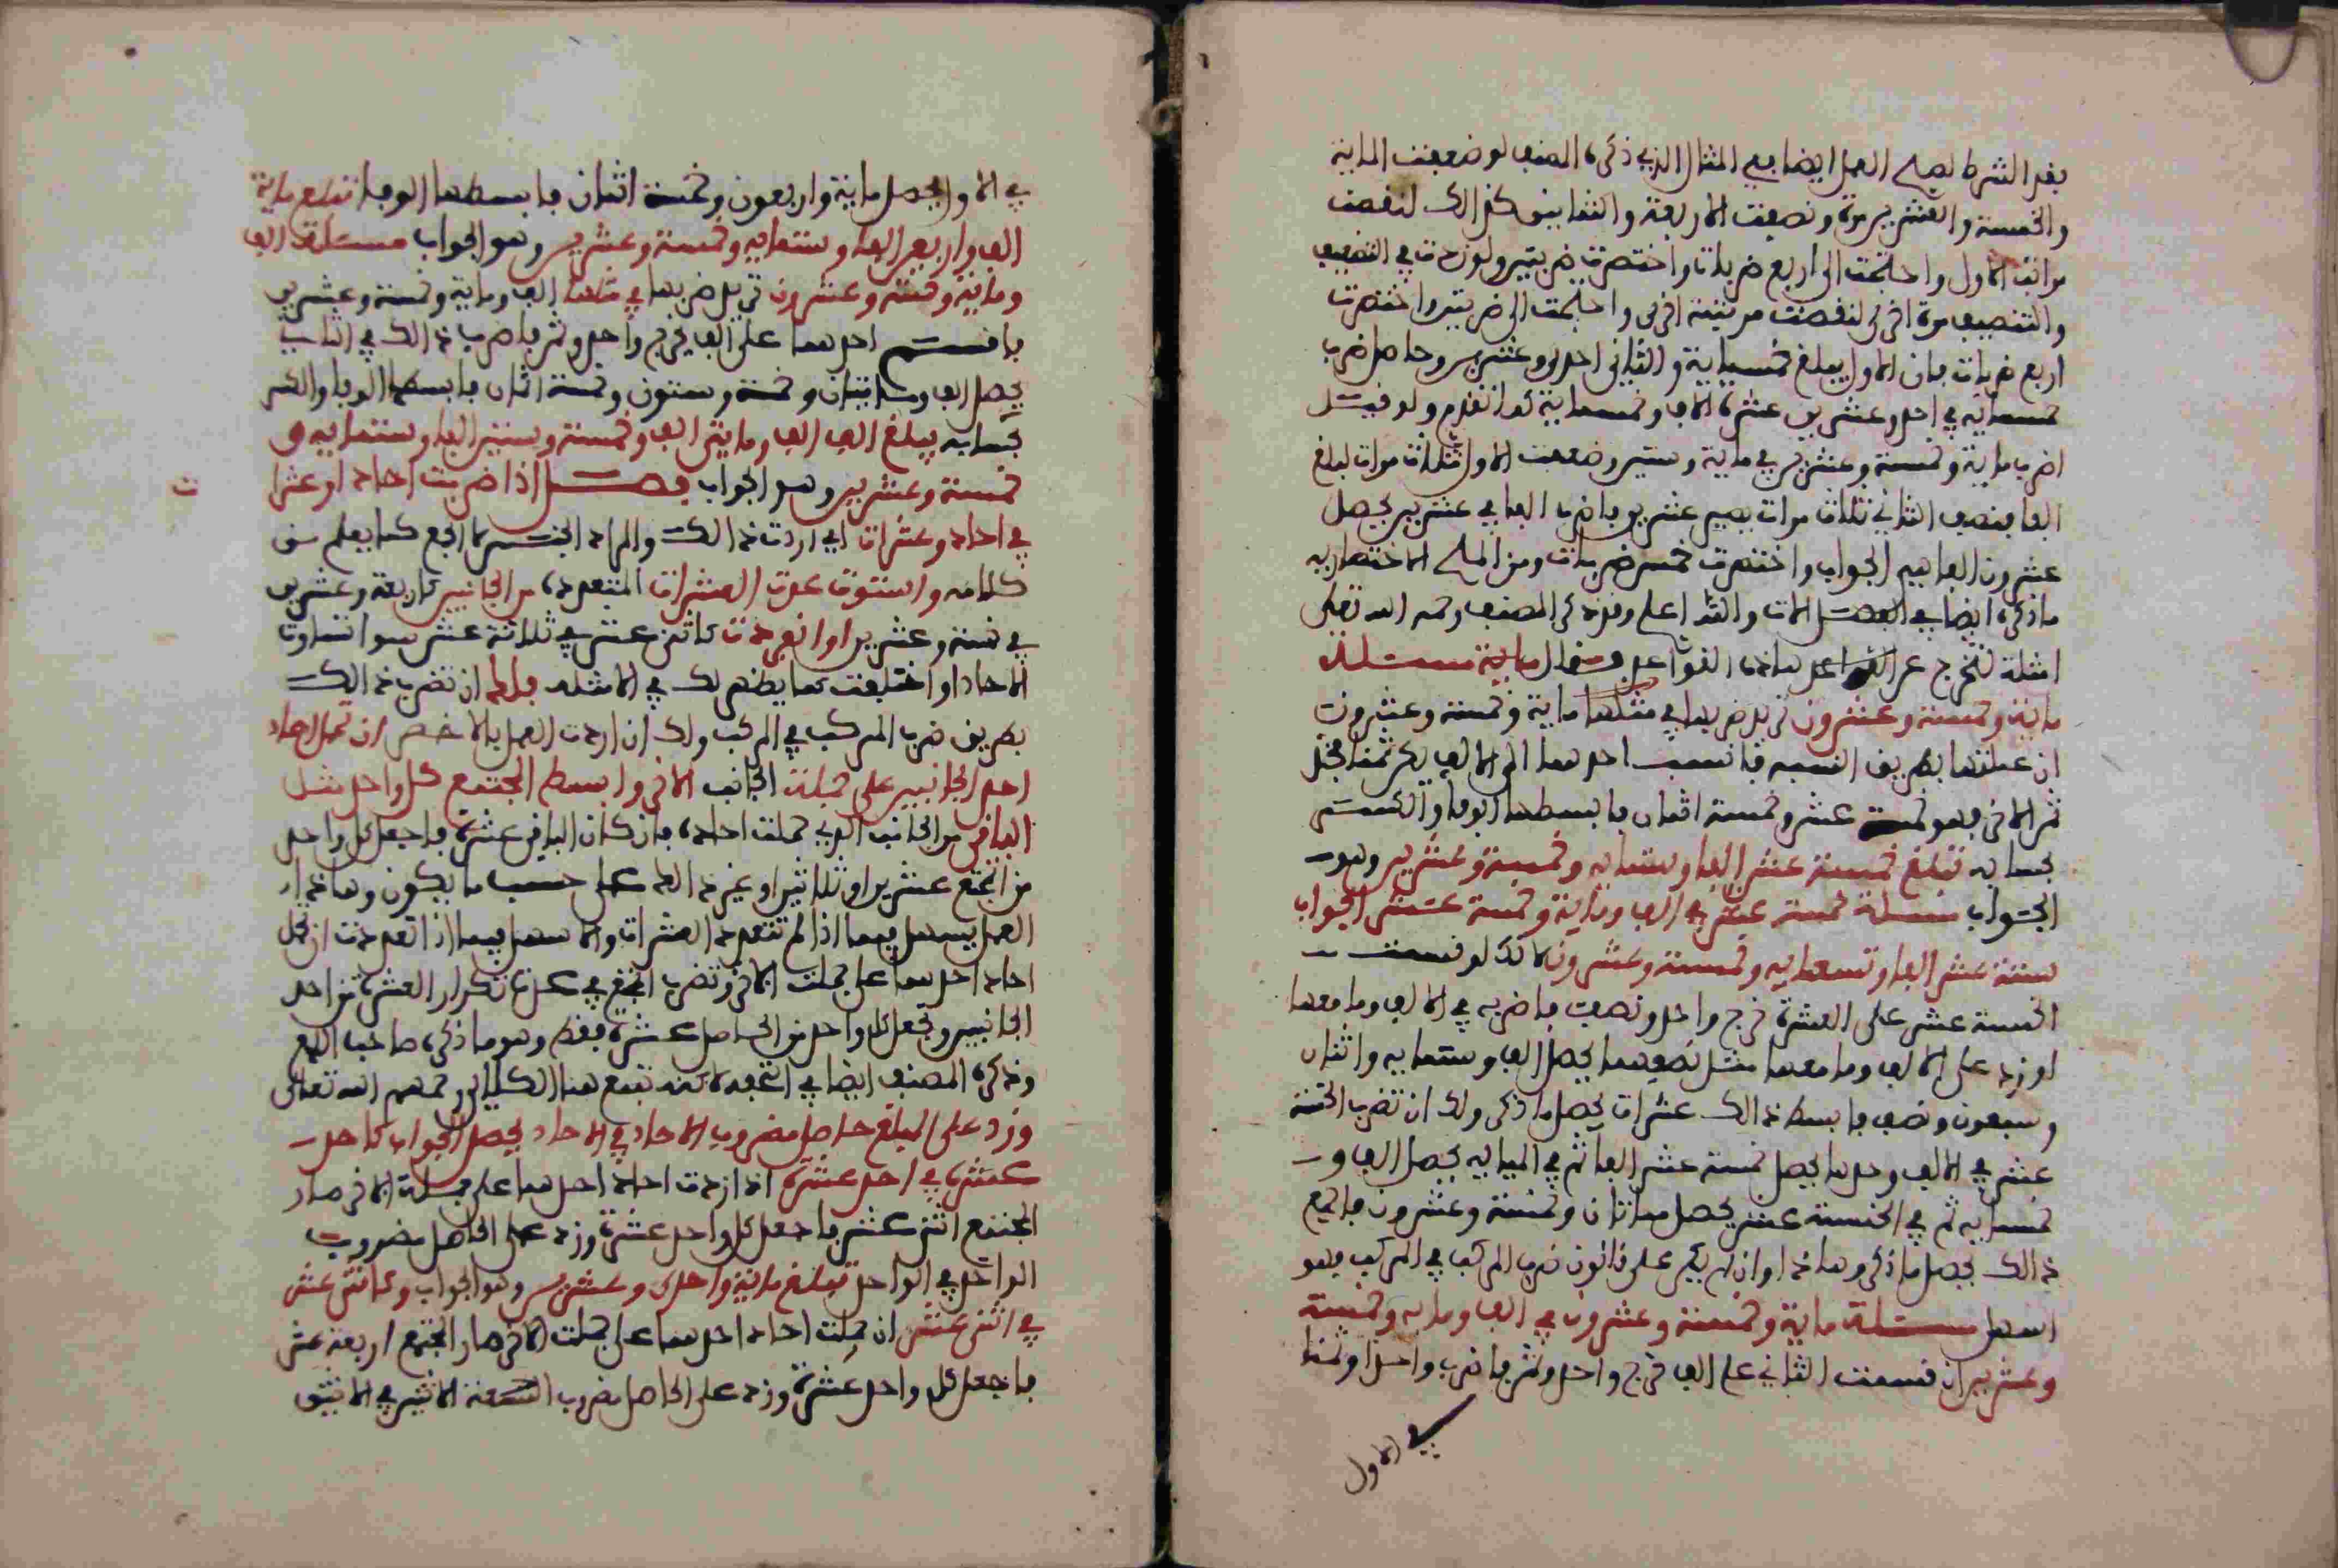 بفقد الشرط يصلح العمل ايضا ففي المثال الذي ذكره المصنف لو ضعفت الماية
والخمسة والعشرين مرة ونصفت الاربعة والثمانين كذالك لنقصت
مراتب الاول واحتجت الى اربع ضربات واختصرت ضربتين ولو زدت في التضعيف
والتنصيف مرة اخرى لنقصت مرتبة اخرى واحتجت الى ضربتين واختصرت
اربع ضربات فان الاول يبلغ خمسماية والثاني احدى وعشرين وحاصل ضرب
خمسماية في احد وعشرين عشرة الاف وخمسماية كما تقدم ولو قيل
اضرب ماية وخمسة وعشرين في ماية وستين وضعفت الاول ثلاث مرات لبلغ
الفا فنصف الثاني ثلاث مرات يصير عشرين فاضرب الفا في عشرين يحصل
عشرون الفا فهو الجواب واختصرت خمس ضربات ومن الملح الاختصارية
ما ذكره ايضا في الفصل الات والله اعلم وقد ذكر المصنف رحمه الله تعلى
امثلة تخرج عن القواعد هاذه القواعد فقال ماية مسئلة
ماية وخمسة وعشرون نريد ضربها في مثلها ماية وخمسة وعشرون
ان عملتها بطريق النسبه فانسب احدهما الى الالف يكن ثمنا فخذ
ثمن الاخر فهو خمسة عشر وخمسة اثمان فابسطها الوفا والكسر
بحسابه تبلغ خمسة عشر الفا وستمايه وخمسة وعشرين وهو
الجواب مسئلة خمسة عشر في الف وماية وخمسة عشر الجواب
ستة عشر الفا وتسعمايه وخمسة وعشرون لانك لو قسمت
الخمسة عشر على العشرة خرج واحد ونصف فاضربه في الالف وما معها
او زد على الالف وما معها مثل نصفهما يحصل الف وستمايه واثنان
وسبعون ونصف فابسط ذالك عشرات يحصل ما ذكر ولك ان تضرب الخمسة
عشر في الالف وحدها يحصل خمسة عشر الفا ثم في المايه يحصل الف و
خمسمايه ثم في الخمسة عشر يحصل مائتان وخمسة وعشرون فاجمع
ذالك يحصل ما ذكر وهاذا وان لم يكن على قانون ضرب المركب في المركب فهو
اسهل مسئلة ماية وخمسة وعشرون في الف ومايه وخمسة
وعشرين ان قسمت الثاني على الف خرج واحد وثمن فاضرب واحدا وثمنا
في الاول
في الاول يحصل ماية واربعون وخمسة اثمان فابسطها الوفا تبلغ ماية
الف واربعين الفا وستمايه وخمسة وعشرين وهو الجواب مسئلة الف
وماية وخمسة وعشرون نريد ضربها في مثلها الف وماية وخمسة وعشرين
فاقسم احدهما على الف يخرج واحد وثمن فاضرب ذالك في الثاني
يحصل الف ومائتان وخمسة وستون وخمسة اثمان فابسطها الوفا والكسر
بحسابه يبلغ الف الف ومايتي الف وخمسة وستين الفا وستمايه و
خمسة وعشرين وهو الجواب فصل اذا ضربت احاد او عشرا
في احاد وعشرات اي اردت ذالك والمراد الجنس لا الجمع كما يعلم من
كلامه واستوت عدت العشرات المتعددة من الجانبين كاربعة وعشرين
في خمسة وعشرين او انفردت كاثنى عشر في ثلاثة عشر سوا تساوت
الاحاد او اختلفت كما يظهر لك في الامثلة فلك ان تضرب ذالك
بطريق ضرب المركب في المركب ولك ان اردت العمل بالاخصر ان تحمل احاد
احد الجانبين على جملة الجانب الاخر وابسط المجتمع كل واحد مثل
الباقي من الجانب الذي حملت احاده فان كان الباقي عشرة فاجعل كل واحد
من المجتمع عشرين او ثلاثين او غير ذالك على حسب ما يكون وهاذا
العمل يسهل فيما اذا لم تتعدد العشرات والاسهل فيما اذا تعددت ان تحمل
احاد احدهما على جملت الاخر وتضرب المجتمع في عدة تكرار العشرة من احد
الجانبين وتجعل كل واحد من الحاصل عشرة فقط وهو ما ذكره صاحب اللمع
وذكره المصنف ايضا في رحمهم الله تعالى
وزد على المبلغ حاصل مضروب الاحاد في الاحاد يحصل الجواب كاحد
عشرة في احد عشرة اذا زدت احاد احدهما على جملة الاخر صار
المجتمع اثنى عشر فاجعل كل واحد عشرة وزد على الحاصل مضروب
الواحد في الواحد تبلغ ماية واحدى وعشرين وهو الجواب وكاثنى عشر
في اثنى عشر ان حملت احاد احدهما على جملت الاخر صار المجتمع اربعة عشر
فاجعل كل واحد عشرة وزد على الحاصل مضروب الاثنين في الاثنين